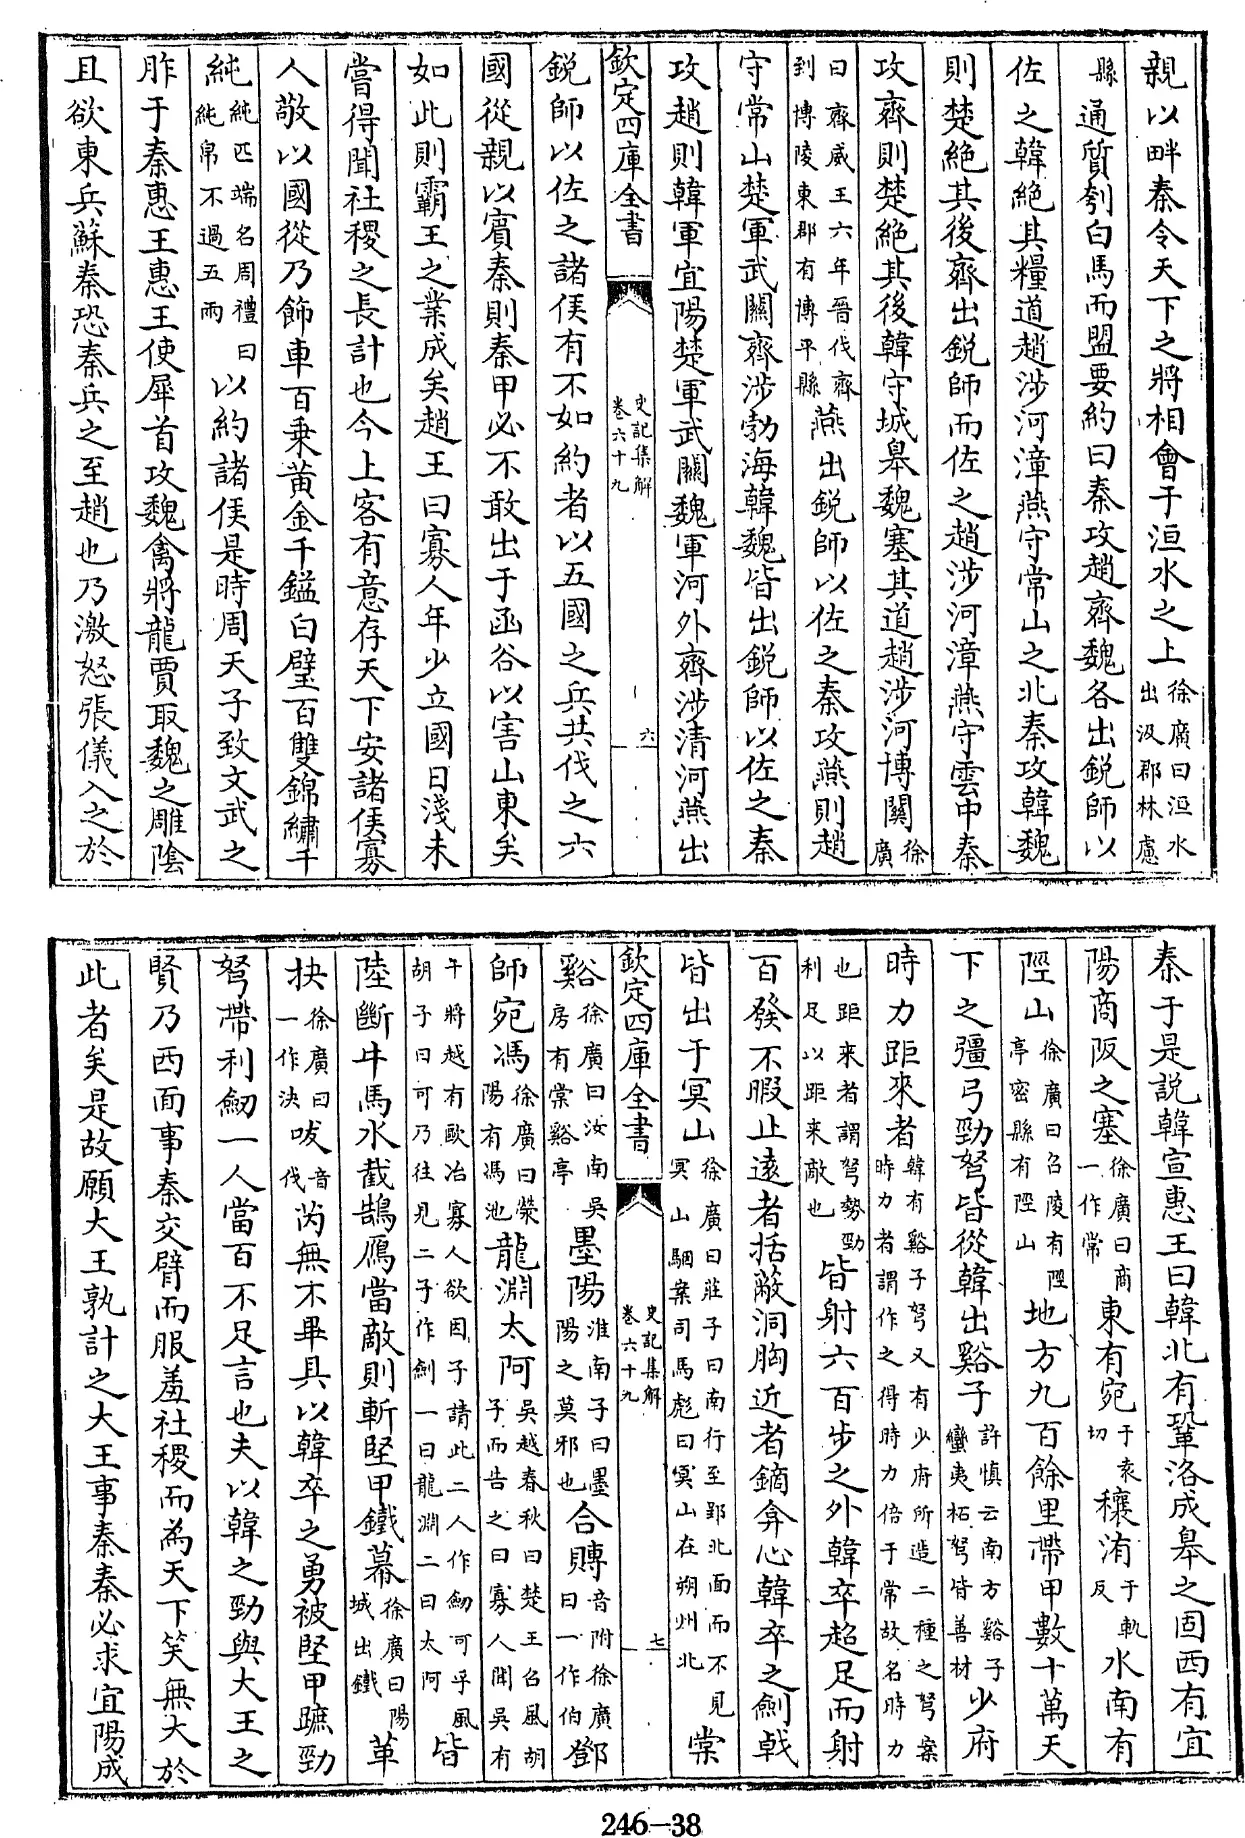 親以畔秦令天下之將相會于洹水之上徐廣曰洹水出汲郡林慮
縣通質刳白馬而盟要約曰秦攻趙齊魏各出鋭師以
佐之韓絶其糧道趙涉河漳燕守常山之北秦攻韓魏
則楚絶其後齊出鋭師而佐之趙涉河漳燕守雲中秦
攻齊則楚絶其後韓守城臯魏塞其道趙涉河博關徐廣
曰齊威王六年晉伐齊到博陵東郡有博平縣燕出鋭師以佐之秦攻燕則趙
守常山楚軍武關齊涉勃海韓魏皆出鋭師以佐之秦
攻趙則韓軍宜陽楚軍武關魏軍河外齊涉清河燕出
欽定四庫全書 史記集解卷六十九 六
鋭師以佐之諸侯有不如約者以五國之兵共伐之六
國從親以賓秦則秦甲必不敢出于函谷以害山東矣
如此則霸王之業成矣趙王曰寡人年少立國日淺未
嘗得聞社稷之長計也今上客有意存天下安諸侯寡
人敬以國從乃飾車百乗黄金千鎰白璧百雙錦繡千
純純匹端名周禮曰純帛不過五兩以約諸侯是時周天子致文武之
胙于秦惠王惠王使犀首攻魏禽將龍賈取魏之雕隂
且欲東兵蘇秦恐秦兵之至趙也乃激怒張儀入之於
秦于是説韓宣惠王曰韓北有鞏洛成臯之固西有宜
陽商阪之塞徐廣曰商一作常東有宛于袁切穰洧于軌反水南有
陘山徐廣曰召陵有陘亭密縣有陘山地方九百餘里帶甲數十萬天
下之彊弓勁弩皆從韓出谿子許慎云南方谿子蠻夷柘弩皆善材少府
時力距來者韓有谿子弩又有少府所造二種之弩案時力者謂作之得時力倍于常故名時力
也距来者謂弩勢勁利足以距来敵也皆射六百步之外韓卒超足而射
百發不暇止逺者括蔽洞胸近者鏑弇心韓卒之劍戟
皆出于冥山徐廣曰莊子曰南行至郢北面而不見冥山駰案司馬彪曰冥山在朔州北棠
欽定四庫全書 史記集解卷六十九 七
谿徐廣曰汝南吳房有棠谿亭墨陽淮南子曰墨陽之莫邪也合賻音附徐廣曰一作伯鄧
師宛馮徐廣曰滎陽有馮池龍淵太阿吳越春秋曰楚王召風胡子而告之曰寡人聞吳有
干將越有歐冶寡人欲因子請此二人作劒可乎風胡子曰可乃往見二子作劍一曰龍淵二曰太阿皆
陸斷牛馬水截鵠鴈當敵則斬堅甲鐵幕徐廣曰陽城出鐵革
抉徐廣曰一作決㕹音伐芮無不畢具以韓卒之勇被堅甲蹠勁
弩帶利劒一人當百不足言也夫以韓之勁與大王之
賢乃西面事秦交臂而服羞社稷而為天下笑無大於
此者矣是故願大王孰計之大王事秦秦必求宜陽成
246-38